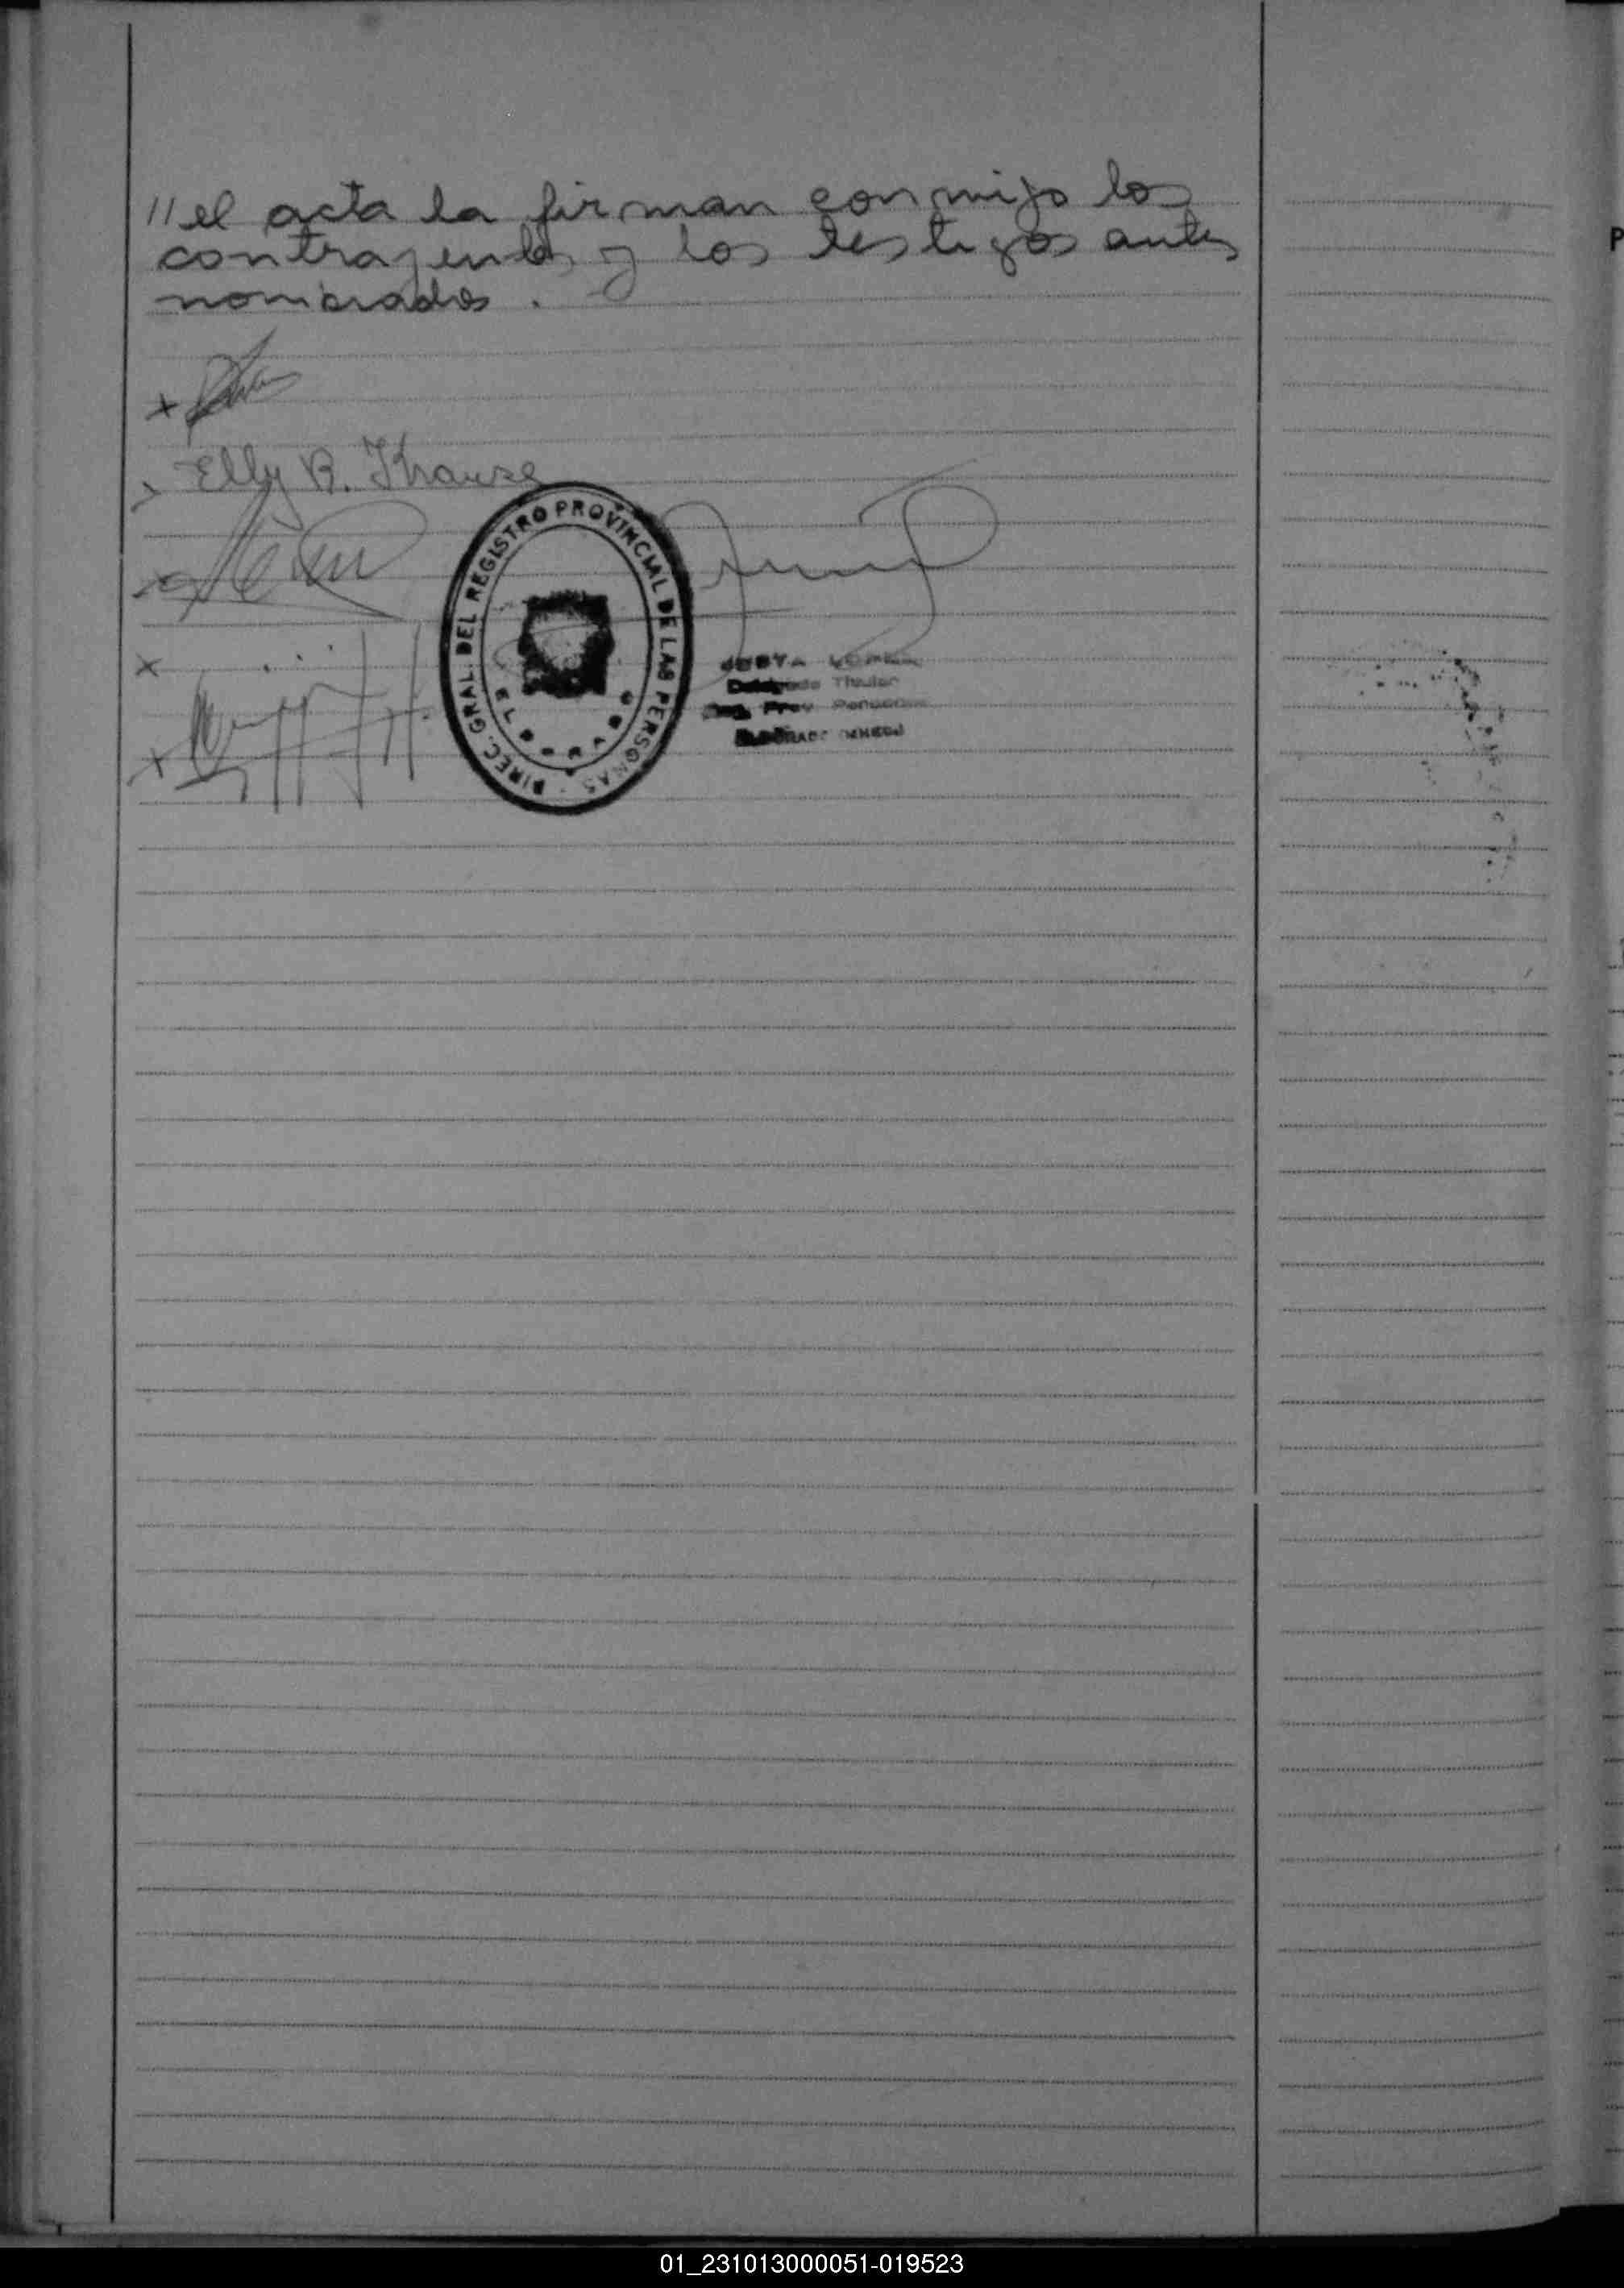 // el acta la firman conmigo los
contrayentes y los testigos antes
nombrados.
x
Elly B. Krause
x
x
DIREC. GRAL. DEL REGISTRO PROVINCIAL DE LAS PERSONAS
ELDORADO
JUSTA LOPEZ
Delegado Titular
Reg. Prov. Personas
ELDORADO
x
P
01_231013000051-019523